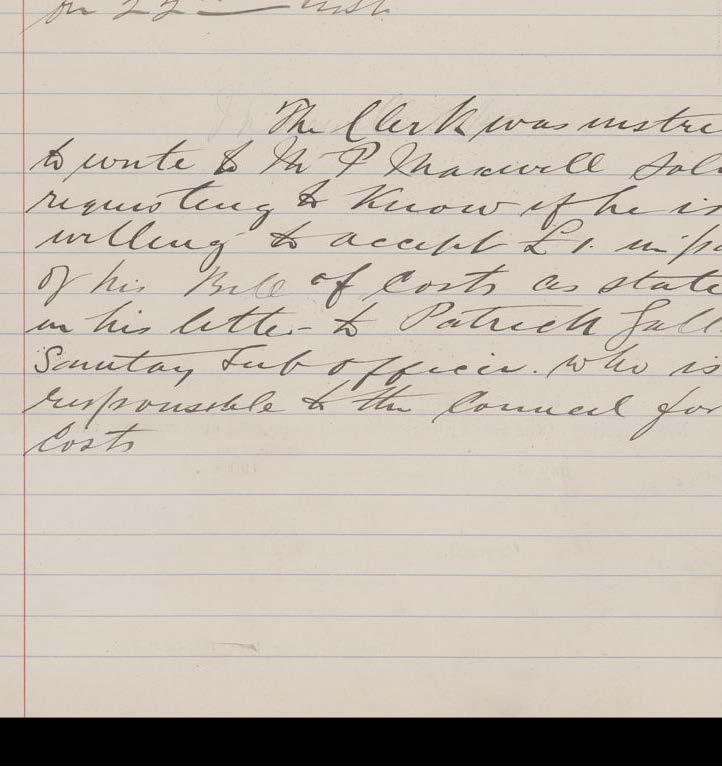 on 22nd inst.
The Clerk was instru
to write to Mr P Maxwell Sol
requisteng to know if he is
willing to accept £1. in pa
of his Bill of Costs as state
in his letter to Patrick Gall
Sanitay Sub officer. who is
responsible to the Council for
Costs